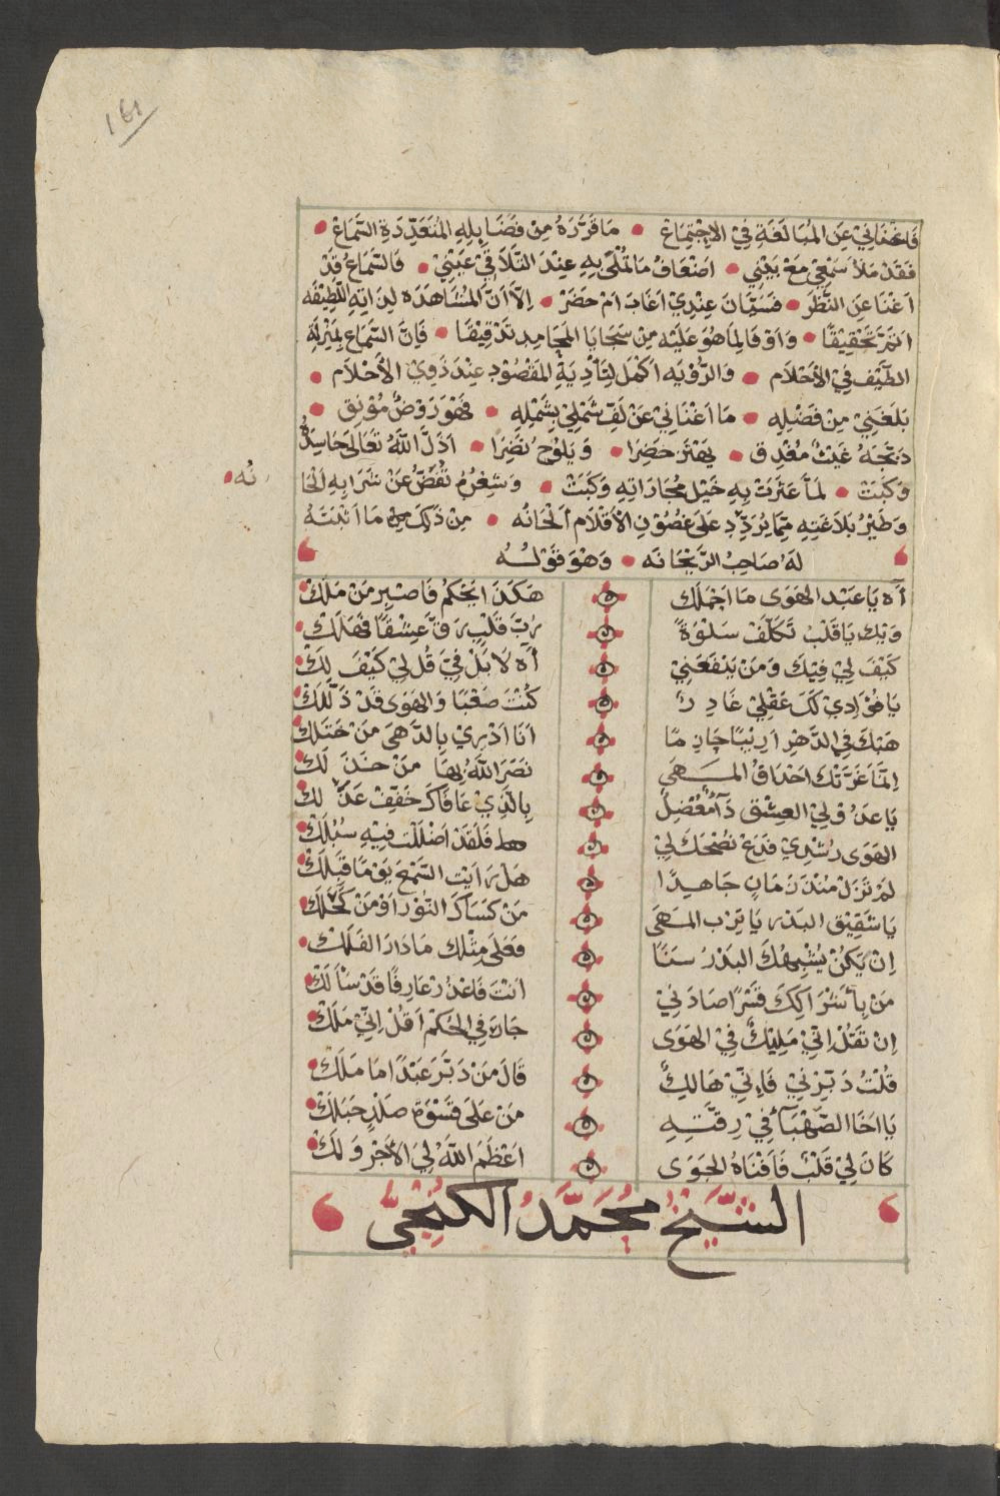 161
فَاتحَفَانِيْ عَنِ المُبَالَغَةِ فِيْ الاِجْتِمَاعْ • مَا قَرَّرَهُ مِنْ فَضَايِلِهِ المُتَعَدِّدَةِ السَّمَاعْ •
فَقَدْ مَلأَ سَمْعِيْ مَعْ بَيْنِي • اَضْعَافُ مَا تُمُلِّىَ بِهِ عِنْدَ التَّلاَقِيْ عَيْنِيْ • فَالسَّمَاعُ قَدْ
اَغْنَا عَنِ النَّظَرْ • فَسِيَّانَ عِنْدِيْ اَغَابَ اَمْ حَضَرْ • اِلاَّ اَنَّ المُشَاهَدَه لِذَاتِهِ اللَّطِيْفَه
اَتَمَّ تَحْقِيْقًا • وَاَوْفَا لِمَا هُوَ عَلَيْه مِنْ سَجَايَا المَحَامِدِ تَدْقِيْقًا • فَاِنَّ السَّمَاعِ بِمَنْزِلَةِ
الطَّيْف فِيْ الأَحْلاَم • وَالرُّؤيَه اَكْمَل لِتَأْدِيَةِ المَقْصُوْدِ عِنْدَ ذَوِيْ الأَحْلاَم •
بَلَغَنِيْ مِنْ فَضْلِه • مَا اَغْنَانِيْ عَنْ لَفِّ شَمْلِيْ بِشَمْلِه • فَهْوَ رَوْضٌ مُوْنِق •
دَبَّجَهُ غَيْثٌ مُغْدِق • يَهْتَز خَضِرَا • وَيَلُوْحُ نَضِرَا • اَذَلَّ اللَّهُ تَعَالَى حَاسِدَهُ
وَكَبَتْ • لَمَّا عَثَرَتْ بِهِ خَيْل مُجَارَاتِهِ وَكَبَتْ • وَشِعْرُهُ تُفَضُّ عَنْ شَرَابِهِ الْحَا
نُه •
وَطَيْرُ بَلاَغَتِهِ مِمَّا يُرَدِّدِ عَلَى غُصُوْنِ الأَقْلاَمِ اَلْحَانُه • مِنْ ذَلِكَ مَا اَثْبَتَهُ
لَهُ صَاحِبُ الرَّيْحَانَه • وَهْوَ قَوْلُهُ
آه يَا عَبْد الهَوَى مَا اَجْمَلَك هَكَذَ الحُكْمُ فَاصْبِر مَنْ مَلَكْ
وَيْكَ يَا قَلْبُ تَكَلَّفْ سَلْوَةً رُبَّ قَلْبٍ رَقَّ عِشْقًا فَهَلَكْ
كَيْفَ لِيْ فِيْكَ وَمَنْ يَنْفَعَنِيْ آه لاَ بَلْ فِيَّ قُل لِيْ كَيْفَ لَكْ
يَا فُؤَادِيْ لَكَ عَقْلِيْ غَادِرٌ كُنْتَ صَعْبًا وَالهَوَى قَدْ ذَلَّلَكْ
هَبْكَ فِي الدَّهْرِ اَرِيْبًا حَازِمًا اَنَا اَدْرِيْ بِالدَّهَى مَنْ خَتَلَكْ
اِنَّمَا غَرَّتْكَ اَحْدَاقُ المَهَى نَصَرَ اللَّهُ بِهَا مَنْ خَذَلَكْ
يَا عَذُوْلِيْ العِشْق دَآءٌ مُعْضِلٌ بِالَّذِيْ عَافَاكَ خَفِّفْ عَذَلَكْ
الهَوَى رُشْدِيْ فَدَعْ نُصْحَكَ لِيْ فَلَقَدْ اَضْلَلْتَ فِيْهِ سُبُلَكْ
لَمْ تَزَلْ مُنْذُ زَمَانٍ جَاهِدًا هَلْ رَاَيْتَ السَّمْعَ يَوْمًا قَبِلَكْ
يَا شَقِيْقَ البَدْر يَا تِرْبِ المَهَى مَنْ كَسَاكَ النُّوْرَ اَوْ مَنْ كَحَّلَكْ
اِنْ يَكُنْ يُشْبِهُكَ البَدْرُ سَنَا فَعَلَى مِثْلِك مَا دَارَ الفَلَكْ
مَنْ بِاَشْرَاكِكَ قَسْرًا صَادَنِيْ اَنْتَ فَاعْذُرْ عَارِفًا قَدْ سَاَلَكْ
اِنْ تَقُلْ اِنِّيْ مَلِيْكٌ فِيْ الهَوَى جَارَ فِي الحُكْمِ اَقُلْ اِنِّيْ مَلَكْ
قُلْتُ دَبِّرْنِيْ فَاِنِّيْ هَالِكٌ قَالَ مَنْ دَبَّرَ عَبْدًا مَا مَلَكْ
يَا اَخَا الصَّهْبَآءُ فِيْ رِقَّتِهِ مَنْ عَلَى قَسْوَة صَلْدٍ جَبَلَكْ
كَانَ لِيْ قَلْبٌ فَاَفْنَاهُ الجَوَى اَعْظَمَ اللَّهُ لِيَ الأَجْرَ وَلَكْ
الشَّيْخُ مُحَمَّدُ الكُنْجِيُّ